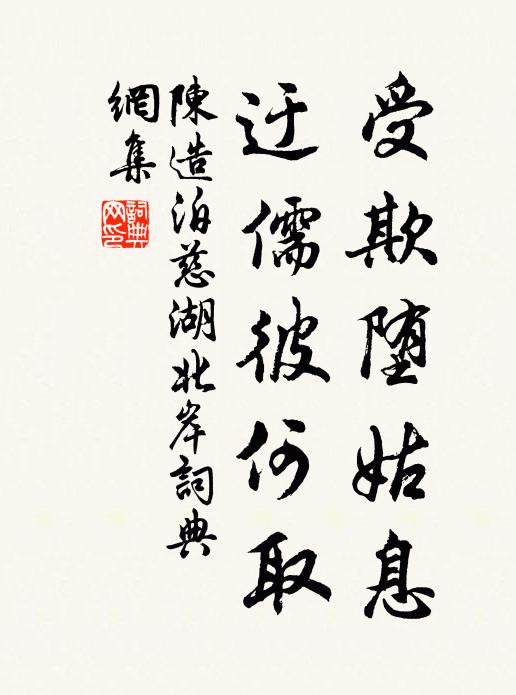 受欺墮姑息
迂儒彼何取
陳造泊慈湖北岸詞典
網集
詞典
网印